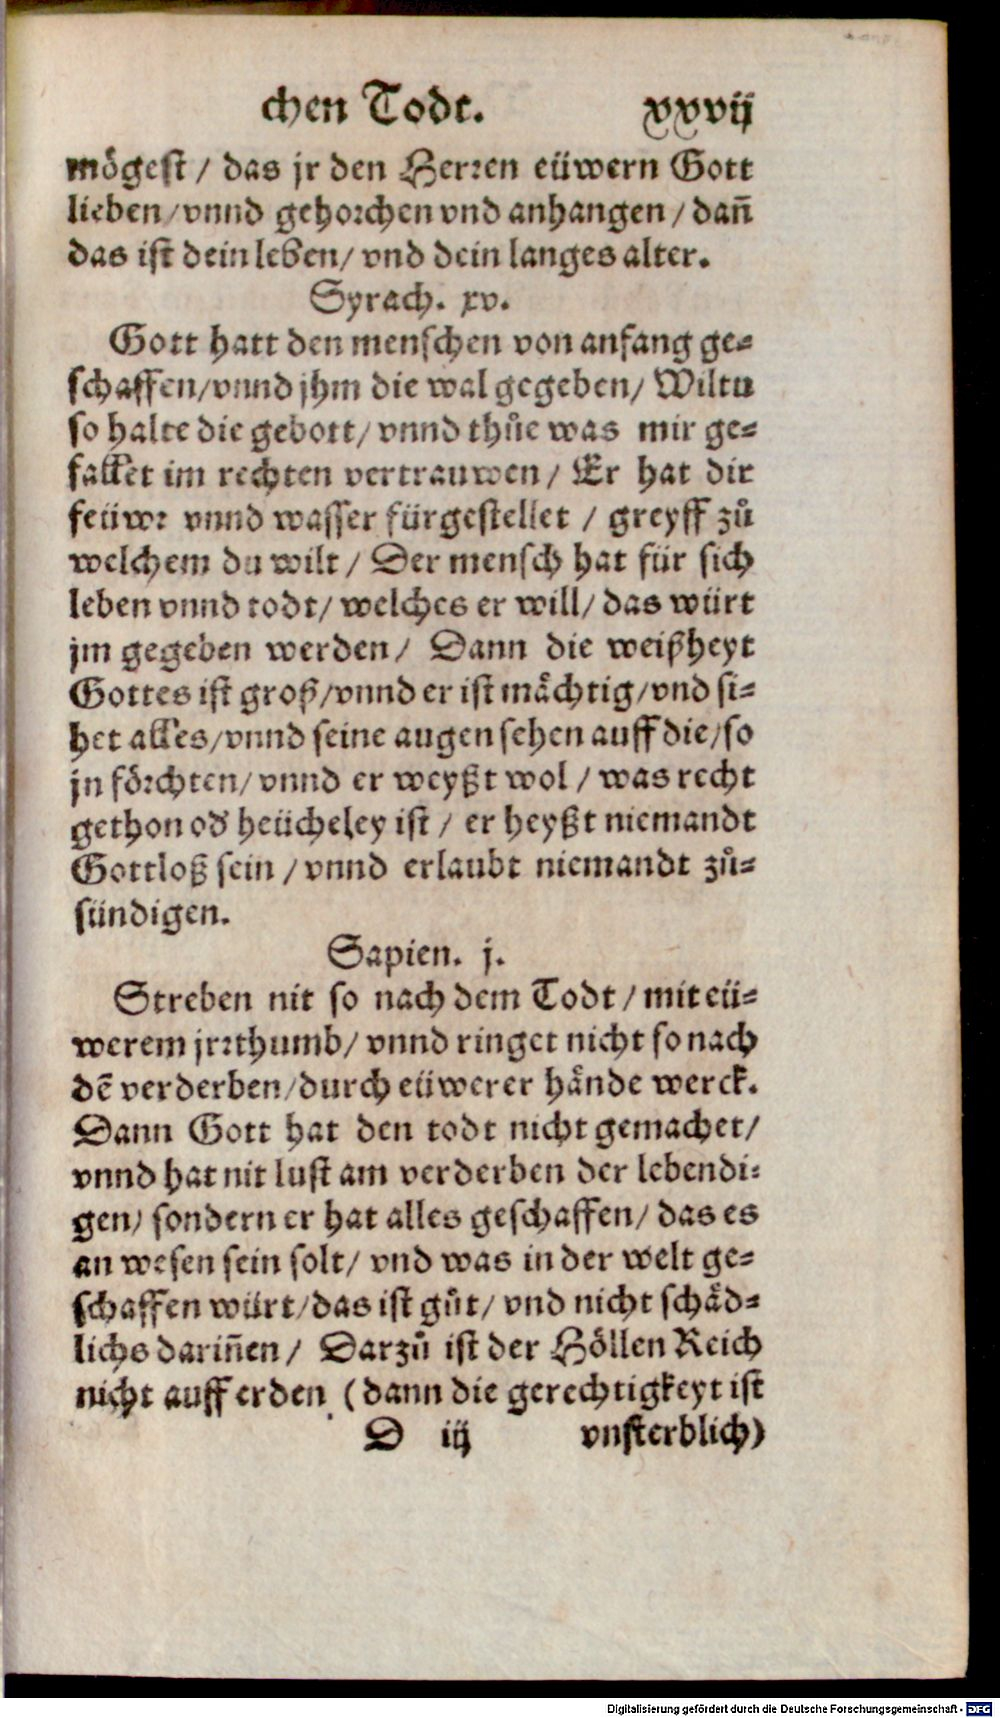 chen Todt. xxvij
mögest / das jr den Herren eüwern Gott
lieben / vnnd gehorchen vnd anhangen / dañ
das ist dein leben / vnd dein langes alter.
Syrach. xv.
Gott hatt den menschen von anfang ge=
schaffen / vnnd jhm die wal gegeben / Wiltu
so halte die gebott / vnnd thůe was mir ge=
fallet im rechten vertrauwen / Er hat dir
feüwr vnnd wasser fürgestellet / greyff zů
welchem du wilt / Der mensch hat für sich
leben vnnd todt / welches er will / das würt
jm gegeben werden / Dann die weißheyt
Gottes ist groß / vnnd er ist mächtig / vnd si=
het alles / vnnd seine augen sehen auff die / so
jn förchten / vnnd er weyßt wol / was recht
gethon od' heücheley ist / er heyßt niemandt
Gottloß sein / vnnd erlaubt niemandt zů=
sündigen.
Sapien. j.
Streben nit so nach dem Todt / mit eü=
werem jrrthumb / vnnd ringet nicht so nach
dē verderben / durch eüwerer hände werck.
Dann Gott hat den todt nicht gemachet /
vnnd hat nit lust am verderben der lebendi=
gen / sondern er hat alles geschaffen / das es
an wesen sein solt / vnd was in der welt ge=
schaffen würt / das ist gůt / vnd nicht schäd=
lichs dariñen / Darzů ist der Höllen Reich
nicht auff erden (dann die gerechtigkeyt ist
D iij vnsterblich)
Digitalisierung gefördert durch die Deutsche Forschungsgemeinschaft - DFG